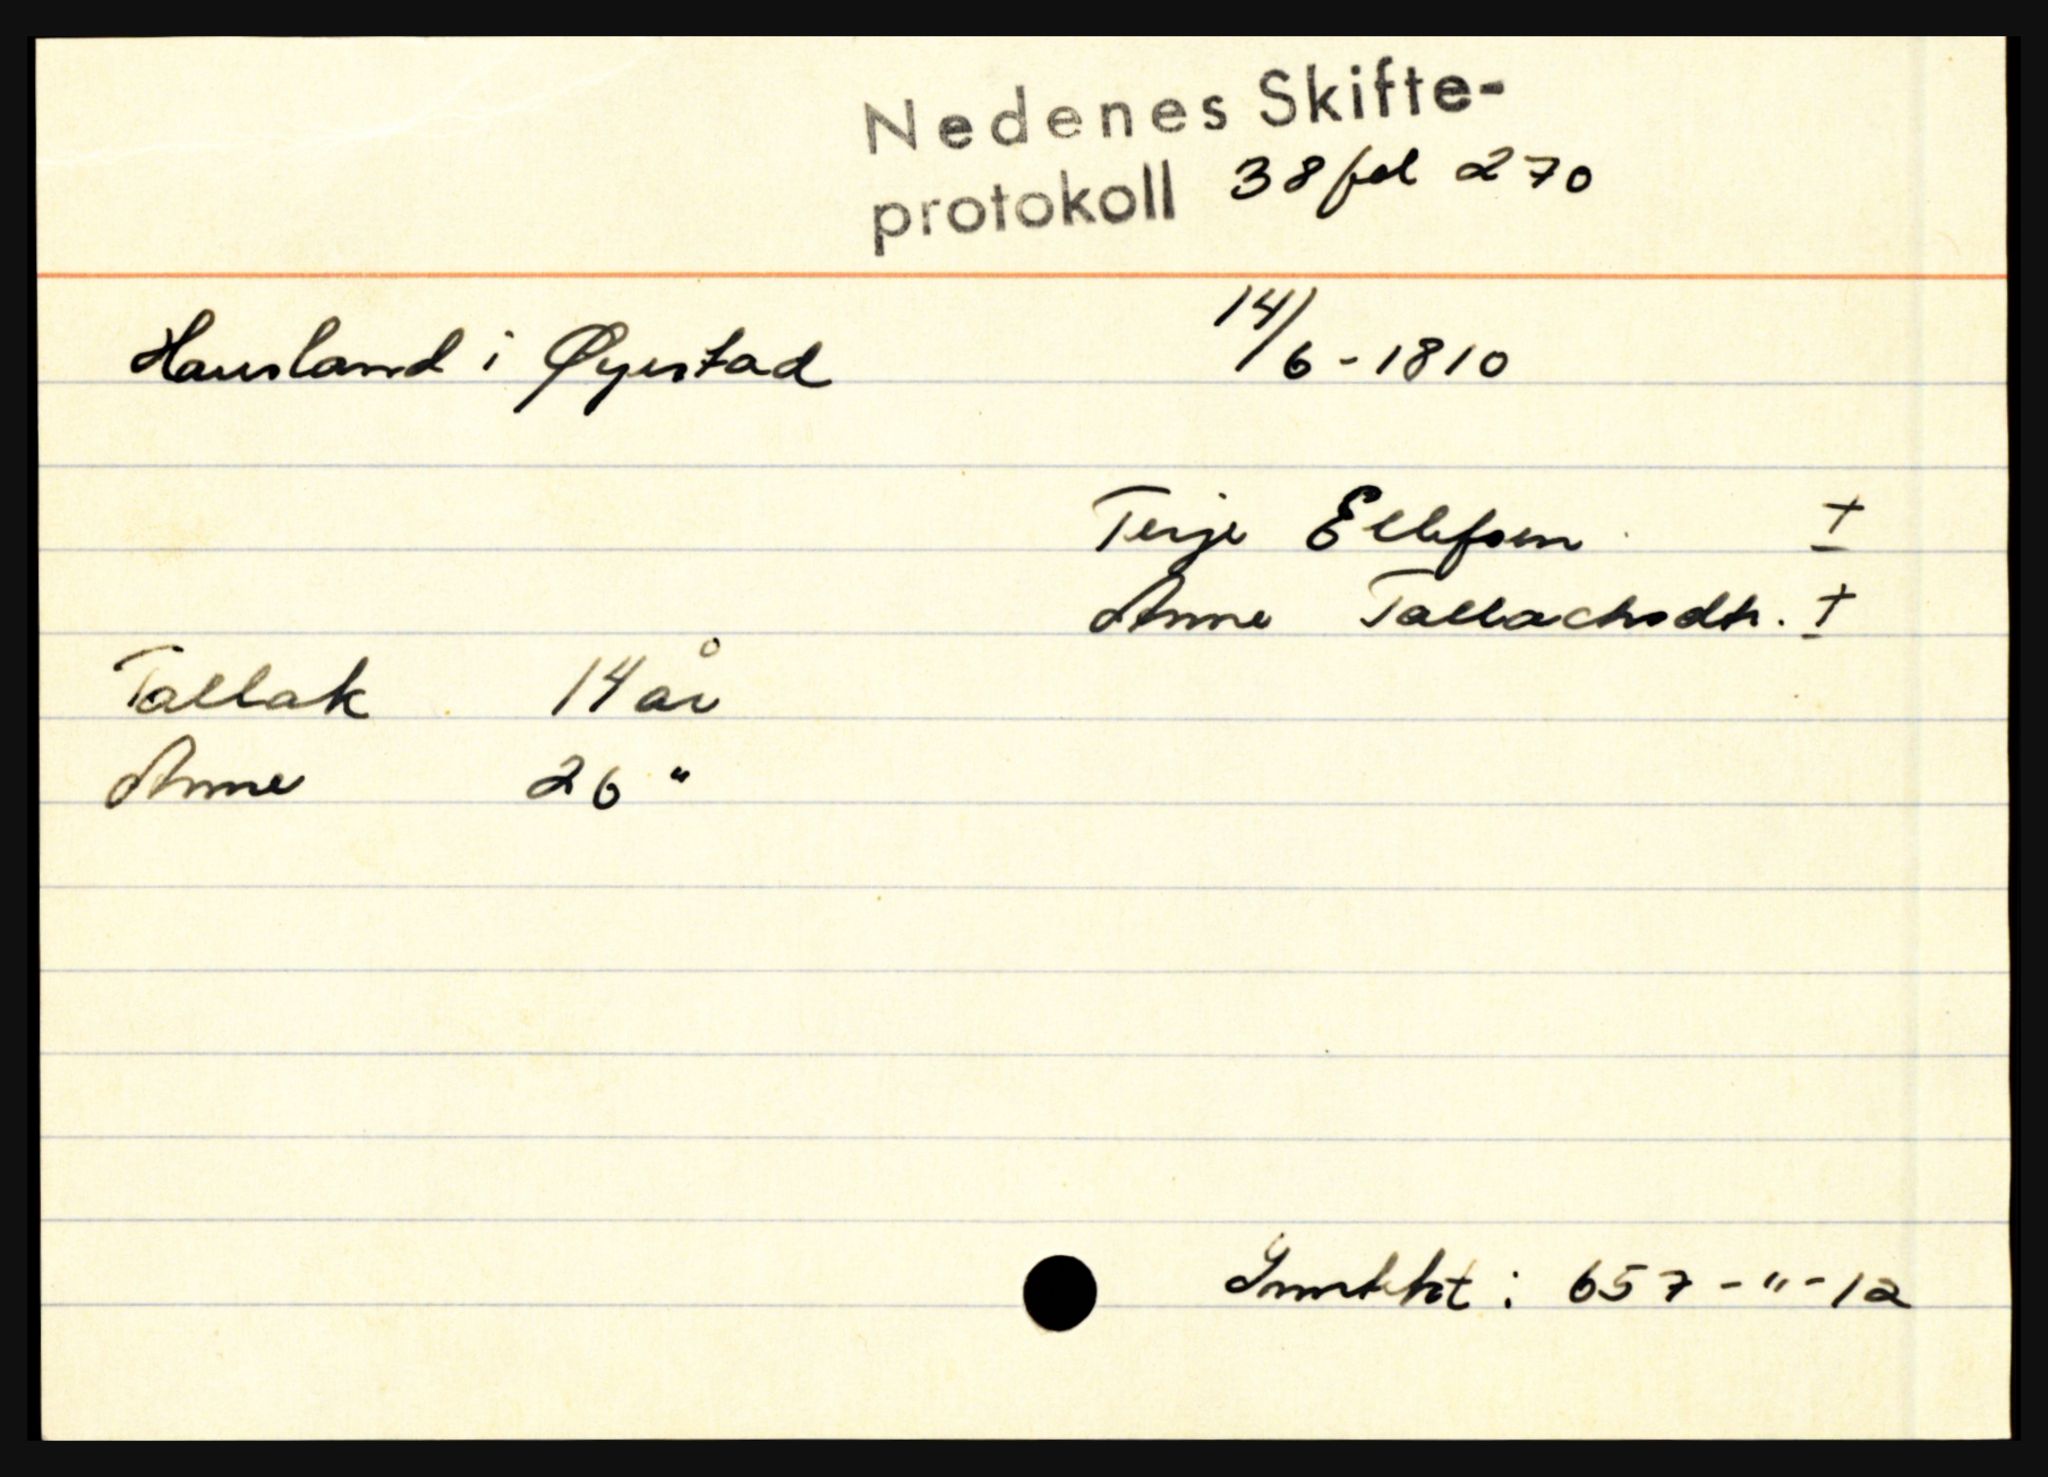 Nedenes Skifte-
protokoll 38 fol 270
Hausland i Øyestad 14/6-1810
Terje Ellefsen +
Anne Tallachsdtr. +
Tallak 14 år
Anne 26 "
: 657-"-12